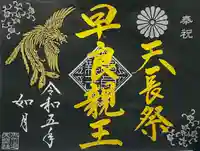 奉祝
天長祭
早良親王
令和五年
如月